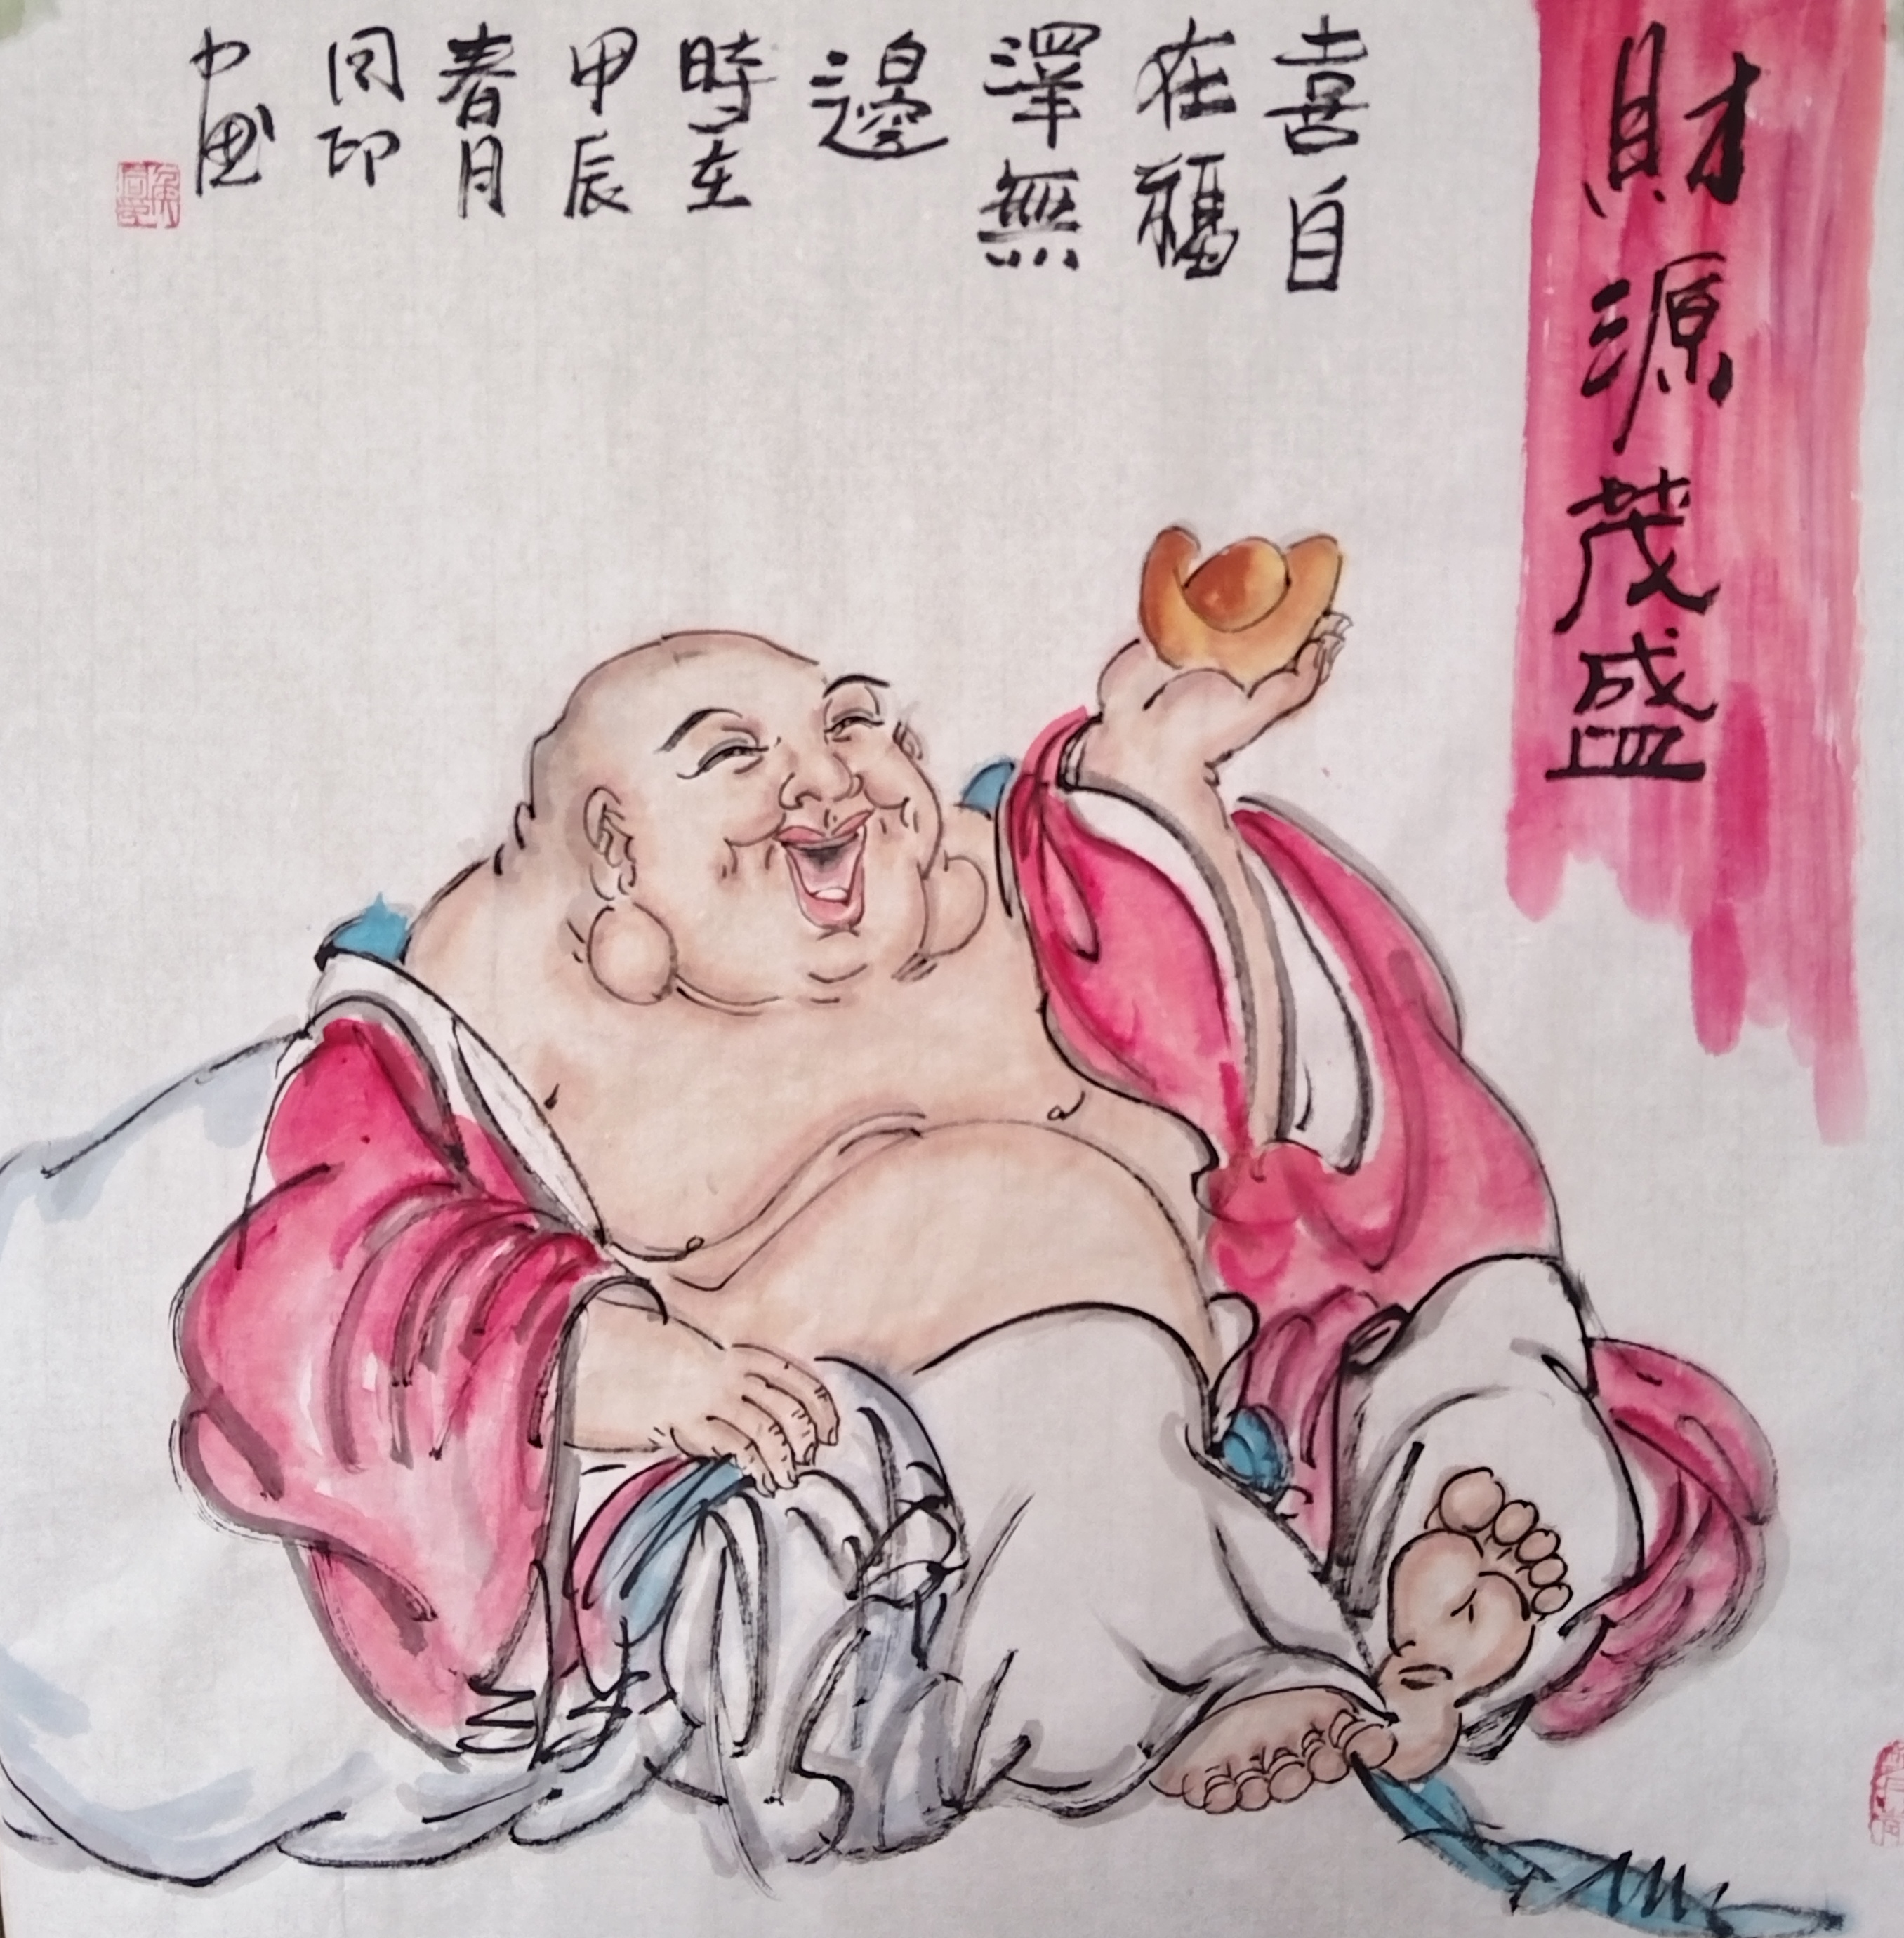 財源茂盛
喜自
在福
澤無
邊
時在
甲辰
春月
同印
中画